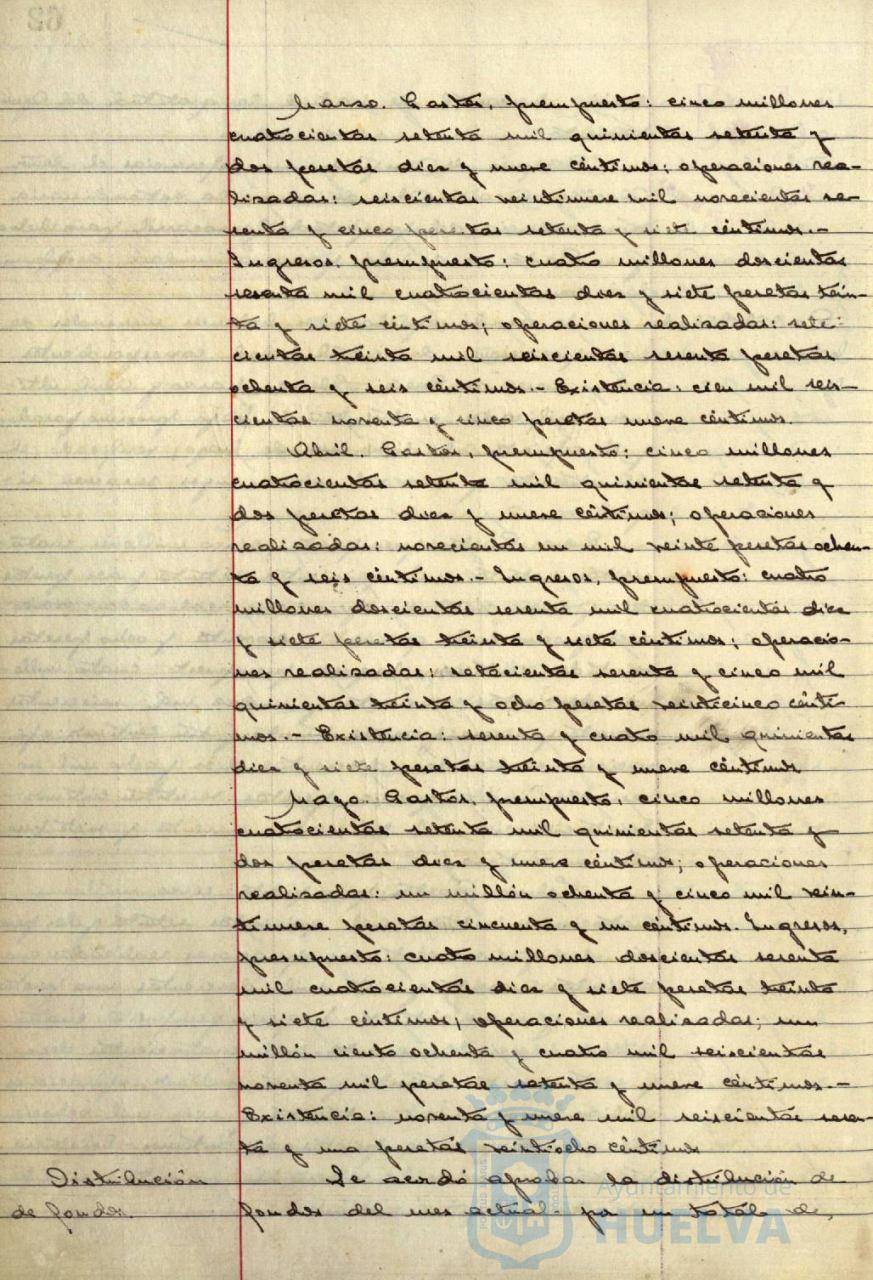 Marzo. Gastos, presupuesto: cinco millones
cuatrocientas setenta mil quinientas setenta y
dos pesetas diez y nueve céntimos; operaciones rea-
lizadas: seiscientas veintinueve mil novecientas se-
senta y cinco pesetas setenta y siete céntimos.-
Ingresos, presupuesto: cuatro millones doscientas
sesenta mil cuatrocientas diez y siete pesetas trein-
ta y siete céntimos; operaciones realizadas: sete-
cientas treinta mil seiscientas sesenta pesetas
ochenta y seis céntimos.- Existencia: cien mil seis-
cientas noventa y cinco pesetas nueve céntimos.
Abril. Gastos, presupuesto: cinco millones
cuatrocientas setenta mil quinientas setenta y
dos pesetas diez y nueve céntimos; operaciones
realizadas: novecientas un mil veinte pesetas ochen-
ta y seis céntimos.- Ingresos, presupuesto: cuatro
millones doscientas sesenta mil cuatrocientas diez
y siete pesetas treinta y siete céntimos; operacio-
nes realizadas: setecientas sesenta y cinco mil
quinientas treinta y ocho pesetas veinticinco cénti-
mos.- Existencia: sesenta y cuatro mil quinientas
diez y siete pesetas treinta y nueve céntimos
Mayo. Gastos, presupuesto: cinco millones
cuatrocientas setenta mil quinientas setenta y
dos pesetas diez y nueve céntimos; operaciones
realizadas: un millón ochenta y cinco mil vein-
tinueve pesetas cincuenta y un céntimos. Ingresos,
presupuesto: cuatro millones doscientas sesenta
mil cuatrocientas diez y siete pesetas treinta
y siete céntimos; operaciones realizadas; un
millón ciento ochenta y cuatro mil seiscientas
noventa mil pesetas setenta y nueve céntimos.-
Existencia: noventa y nueve mil seiscientas sesen-
ta y una pesetas veintiocho céntimos
Distribución
de fondos.
Se acordó aprobar la distribución de
fondos del mes actual por un total de,
Ayuntamiento de
HUELVA